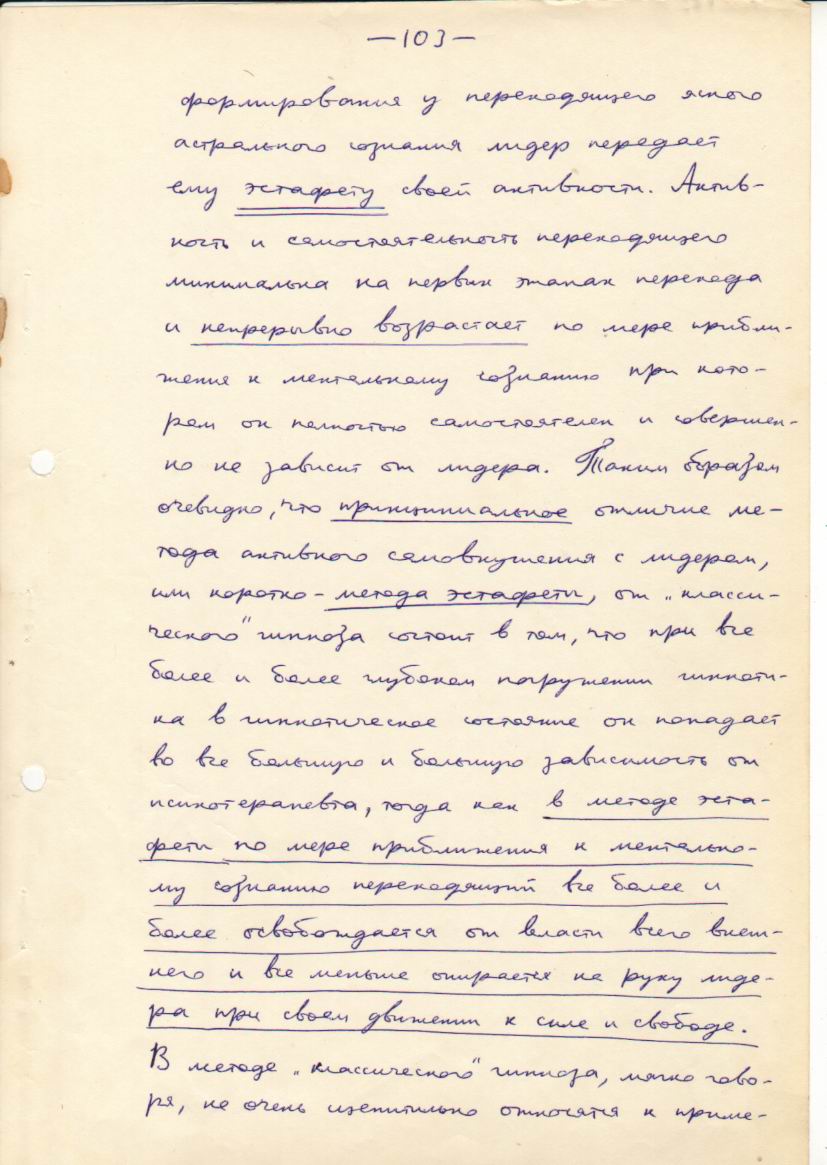 —103—
формирования у переходящего ясного
астрального сознания лидер передает
ему эстафету своей активности. Актив-
ность и самостоятельность переходящего
минимальна на первых этапах перехода
и непрерывно возрастает по мере прибли-
жения к ментальному сознанию при кото-
ром он полностью самостоятелен и совершен-
но не зависит от лидера. Таким образом
очевидно, что принципиальное отличие ме-
тода активного самовнушения с лидером,
или коротко - метода эстафеты, от „класси-
ческого" гипноза состоит в том, что при все
более и более глубоком погружении гипноти-
ка в гипнотическое состояние он попадает
во все большую и большую зависимость от
психотерапевта, тогда как в методе эста-
феты по мере приближения к ментально-
му сознанию переходящий все более и
более освобождается от власти всего внеш-
него и все меньше опирается на руку лиде-
ра при своем движении к силе и свободе.
В методе „классического" гипноза, мягко гово-
ря, не очень щепитильно относятся к приме-